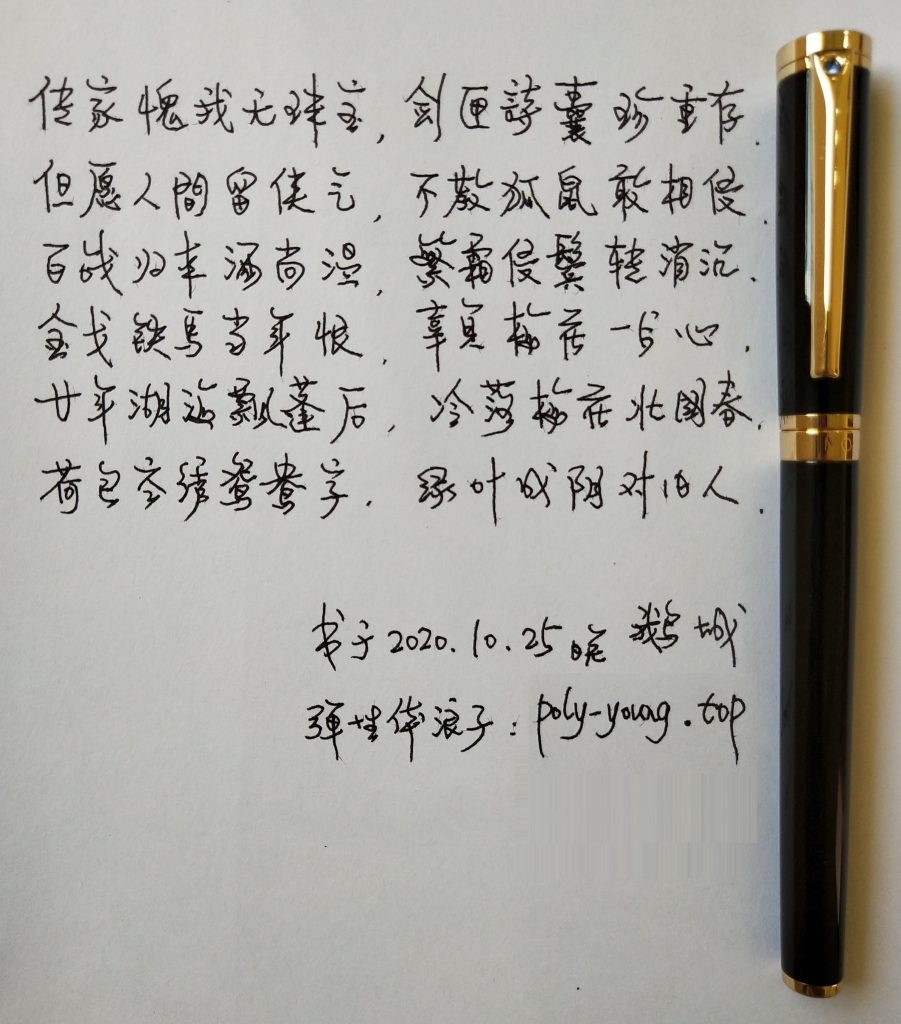 传家愧我无珠玉,剑匣诗囊珍重存.
但愿人間留侠气,不教狐鼠敢相侵.
百战归来酒尚温,繁霜侵鬓转消沉.
金戈铁马当年恨,辜负梅花一片心.
廿年湖海飘蓬后,冷落梅花北国春.
荷包空绣鸳鸯字.绿叶成阴对旧人.
书于2020.10.25晚 鹅城
弹性体浪子:poly-young.top